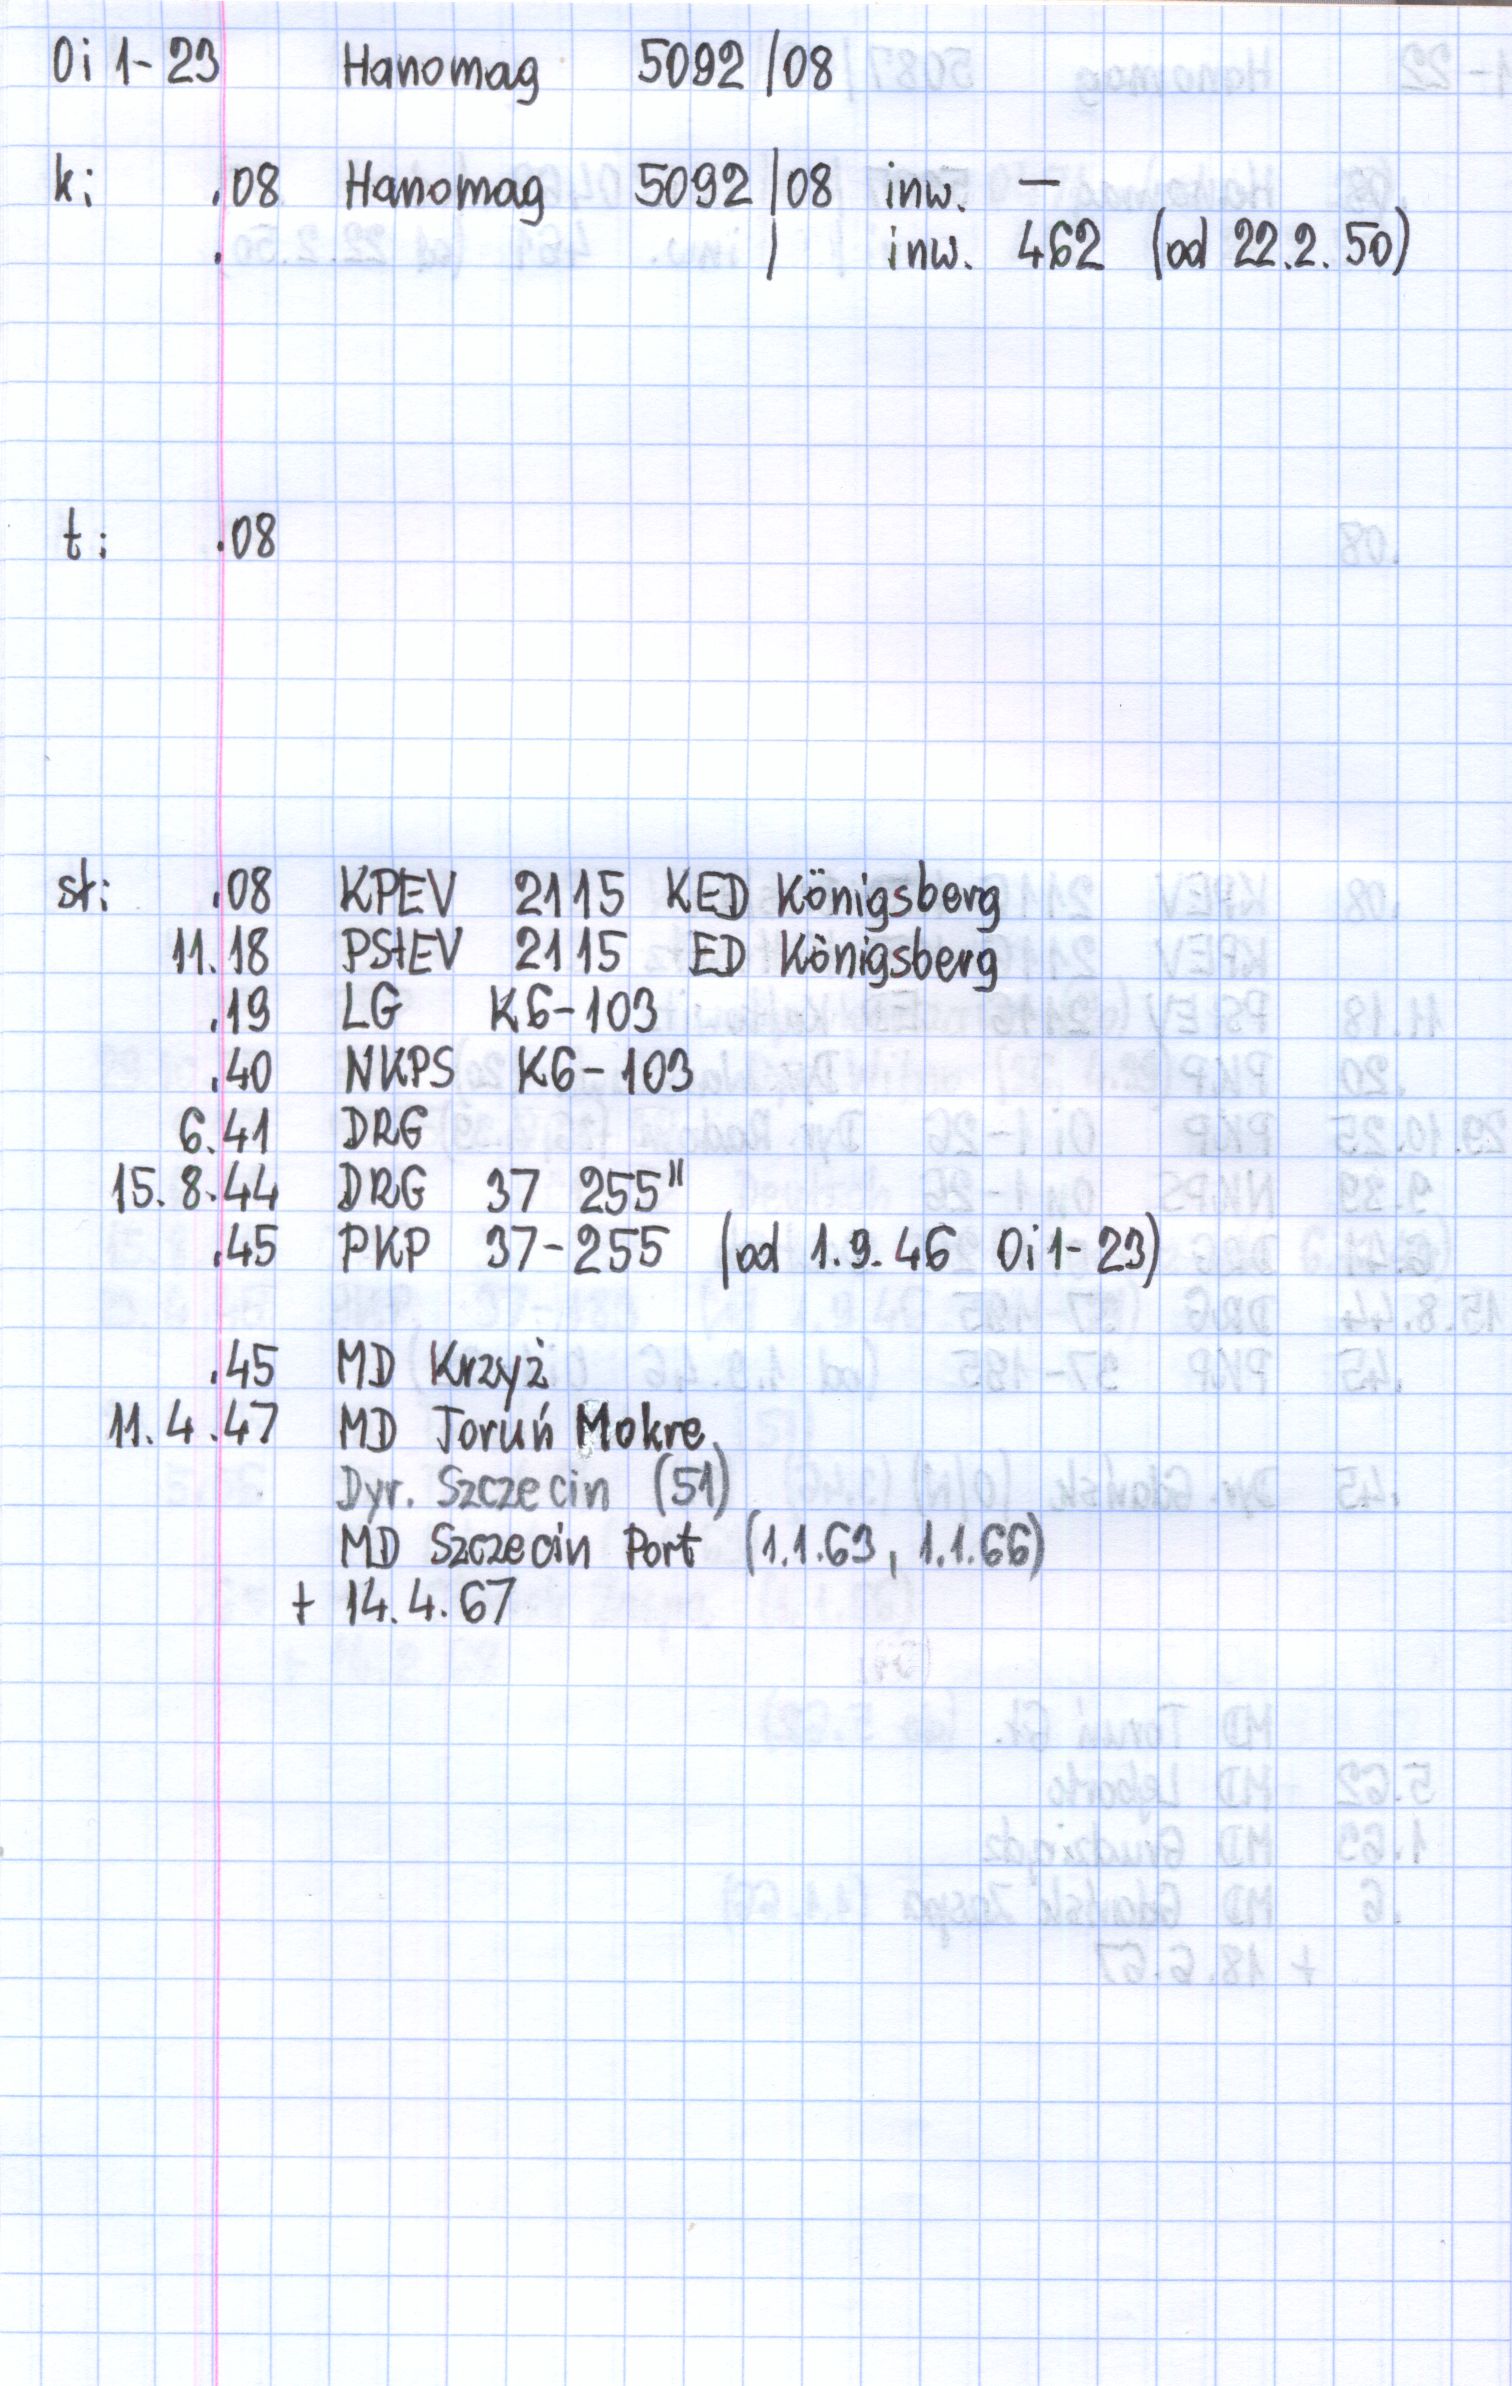 Oi 1-23 Hanomag 5092/08
k: .08 Hanomag 5092/08 inw. —
. / inw. 462 (od 22.2.50)
t: .08
st: .08 KPEV 2115 KED Königsberg
11.18 PStEV 2115 ED Königsberg
.19 LG K6-103
.40 NKPS K6-103
6.41 DRG
15.8.44 DRG 37 255"
.45 PKP 37-255 (od 1.9.46 Oi1-23)
.45 MD Krzyż
11.4.47 MD Toruń Mokre
Dyr. Szczecin (51)
MD Szczecin Port (1.1.63, 1.1.66)
+ 14.4.67